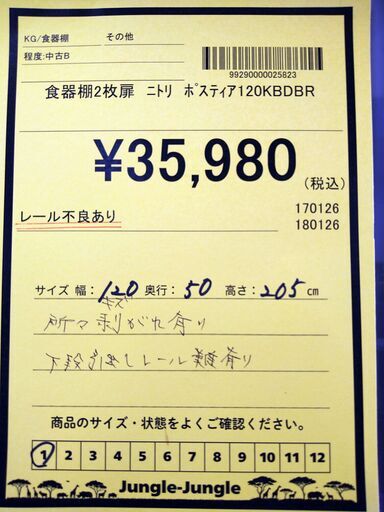 KG/食器棚 その他
程度:中古B
99290000025823
食器棚2枚扉 ニトリ ポスティア120KBDBR
¥35,980
(税込)
レール不良あり
170126
180126
サイズ 幅: 120 奥行: 50 高さ: 205 cm
キズ
所々剥がれ有り
下段引出しレール難有り
商品のサイズ・状態をよくご確認ください。
1 2 3 4 5 6 7 8 9 10 11 12
Jungle-Jungle